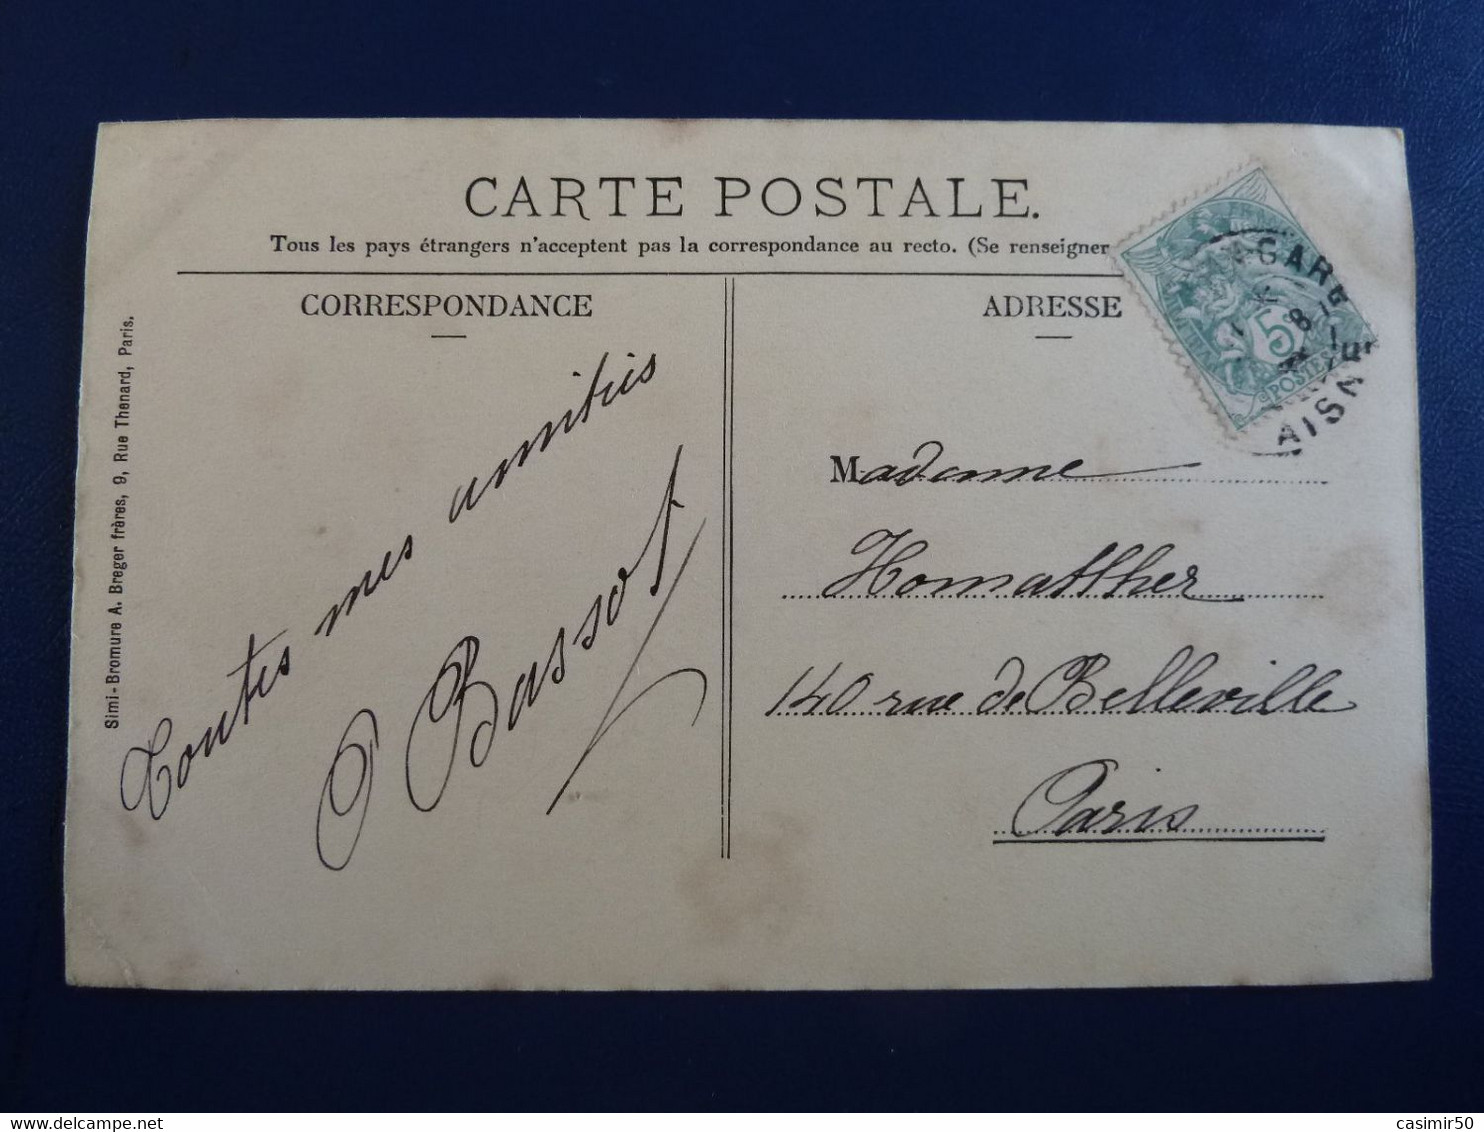 CARTE POSTALE.
Tous les pays étrangers n'acceptent pas la correspondance au recto. (Se renseigner
CORRESPONDANCE
ADRESSE
Simi-Bromure A. Breger frères, 9, Rue Thenard, Paris.
Toutes mes amitiés
P Bassot
Madame
Homatther
140 rue de Belleville
Paris
5
POSTES
AISNE
casimir50